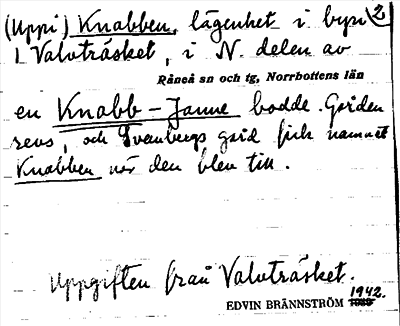 (Uppi) Knabben, lägenhet i byn 2
1 Valvträsket, i N. delen av
Råneå sn och tg, Norrbottens län
en Knabb-Janne bodde. Gården
revs, och Svenbergs gård fick namnet
Knabben när den blev till.
Uppgiften från Valvträsket.
EDVIN BRÄNNSTRÖM 1942.